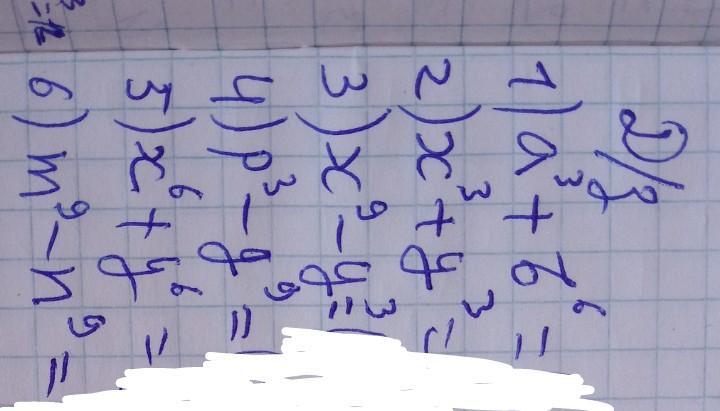 Д/з
1) a³ + b⁶ =
2) x³ + y³ =
3) x⁹ - y³ =
4) p³ - g⁹ =
5) x⁶ + y⁶ =
6) m⁹ - n⁹ =